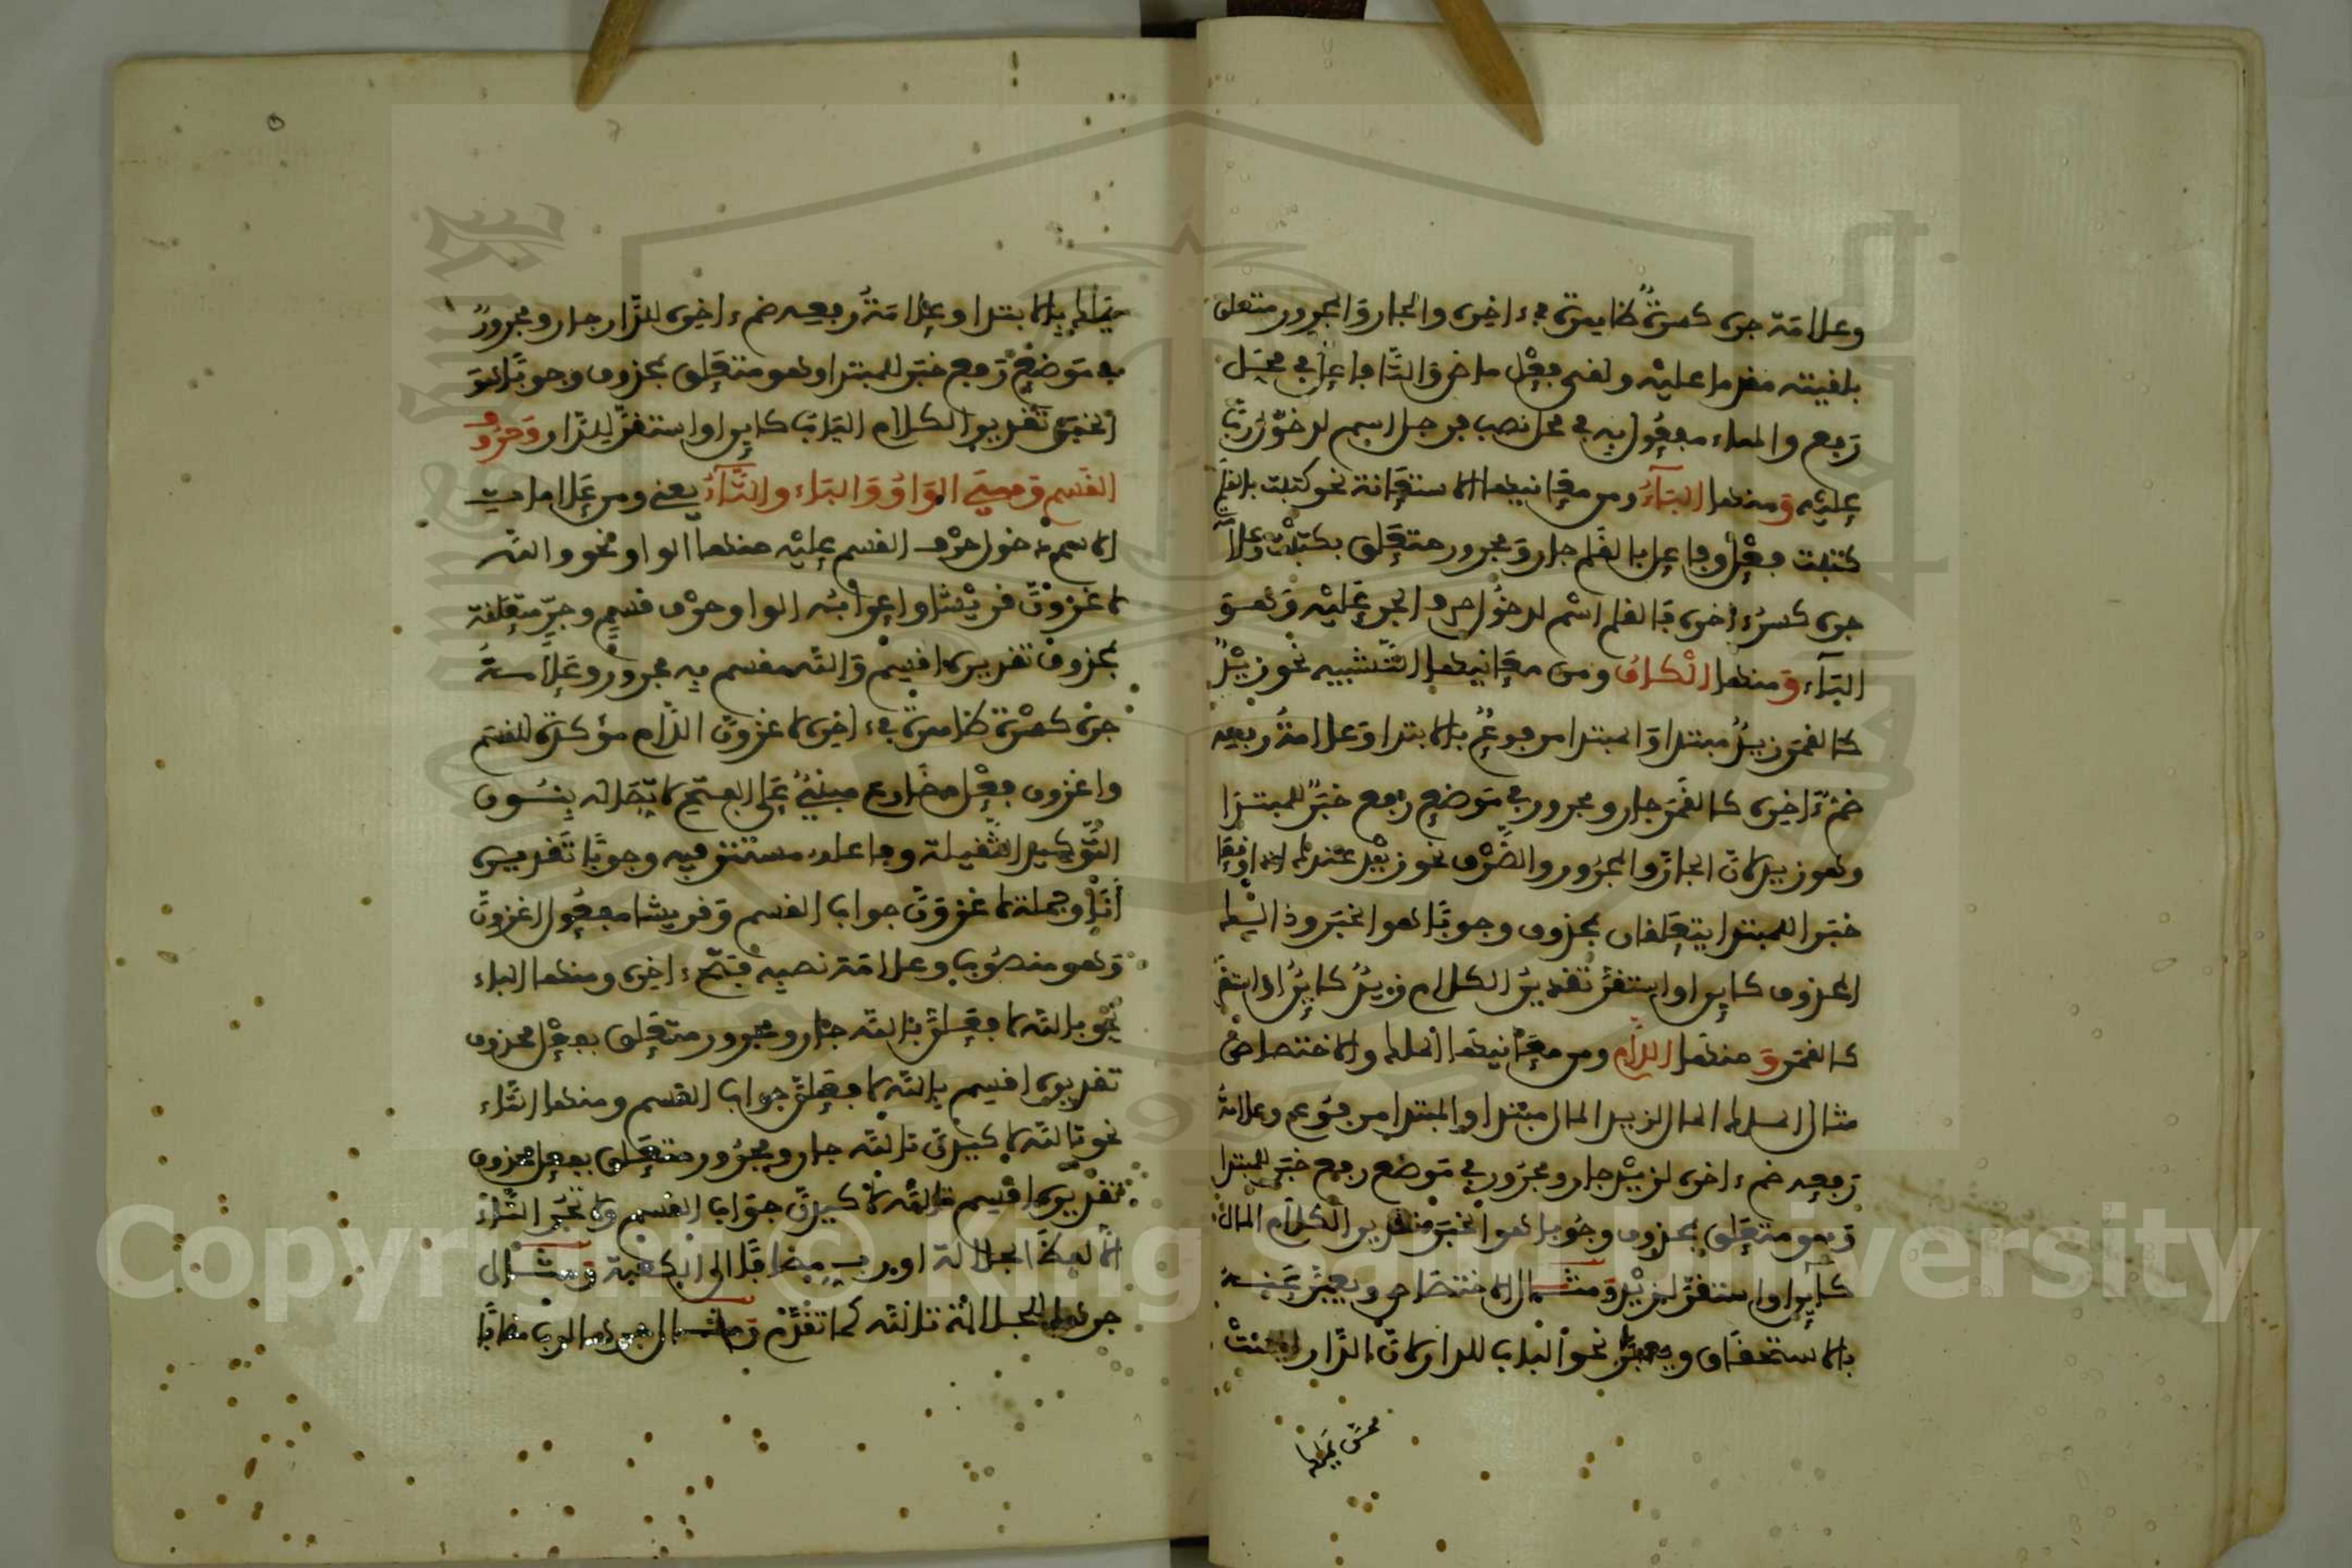 وعلامة جره كسرة ظاهرة في ءاخره والجار والمجرور متعلق
بلقيته مقدما عليه ولقي فعل ماض والتا فاعل في محل
رفع والهاء مفعول به في محل نصب فرجل اسم لدخول رب
عليه ومنها الباء ومن معانيها الاستعانة نحو كتبت بالقلم
كتبت فعل وفاعل بالقلم جار ومجرور متعلق بكتبت وعلامة
جره كسرء اخره فالقلم اسم لدخول حرف الجر عليه وهو
الباء ومنها الكاف ومن معانيها التشبيه نحو زيد
كالقمر زيد مبتدا والمبتدا مرفوع بالابتدا وعلامة رفعه
ضم ءاخره كالقمر جار ومجرور في موضع رفع خبر للمبتدا
وهو زيد لان الجار والمجرور والظرف نحو زيد عندك اذا وقعا
خبرا للمبتدا يتعلقان بمحذوف وجوبا هو الخبر وذالك
المحذوف كاين او استقر تقدير الكلام زيد كاين او استقر
كالقمر ومنها اللام ومن معانيها الملك والاختصاص
مثال الملك المال لزيد المال مبتدا والمبتدا مرفوع وعلامة
رفعه ضم ءاخره لزيد جار ومجرور في موضع رفع خبر للمبتدا
وهو متعلق بمحذوف وجوبا هو الخبر تقدير الكلام المال
كاين او استقر لزيد ومثال الاختصاص ويعبر عنه
بالاستحقاق نحو الباب للدار لان الدار
يملك بالابتدا وعلامة رفعه ضم ءاخره للدار جار ومجرور
في موضع رفع خبر للمبتدا وهو متعلق بمحذوف وجوبا هو
الخبر تقدير الكلام الباب كاين او استقر للدار وحروف
القسم وهي الواو والباء والتاء يعني ومن علامات
الاسم دخول حرف القسم عليه منها الواو نحو والله
لاغزون قريشا واعرابه الواو حرف قسم وجر متعلقة
بمحذوف تقديره اقسم والله مقسم به مجرور وعلامة
جره كسرة ظاهرة في ءاخره لاغزون اللام مؤكدة للقسم
واغزون فعل مضارع مبني على الفتح لاتصاله بنون
التوكيد الثقيلة وفاعله مستتر فيه وجوبا تقديره
انا وجملة لاغزون جواب القسم وقريشا مفعول اغزون
وهو منصوب وعلامة نصبه فتح ءاخره ومنها الباء
نحو بالله لافعلن بالله جار ومجرور متعلق بفعل محذوف
تقديره اقسم بالله لافعلن جواب القسم ومنها التاء
نحو تالله لاكيدن تالله جار ومجرور متعلق بفعل محذوف
تقديره اقسم تالله لاكيدن جواب القسم ولا تجر التاء
الا لفظ الجلالة او رب مضافا الى الكعبة ومثال
جرها للجلالة تالله كما تقدم ومثال جرها لرب مضافا